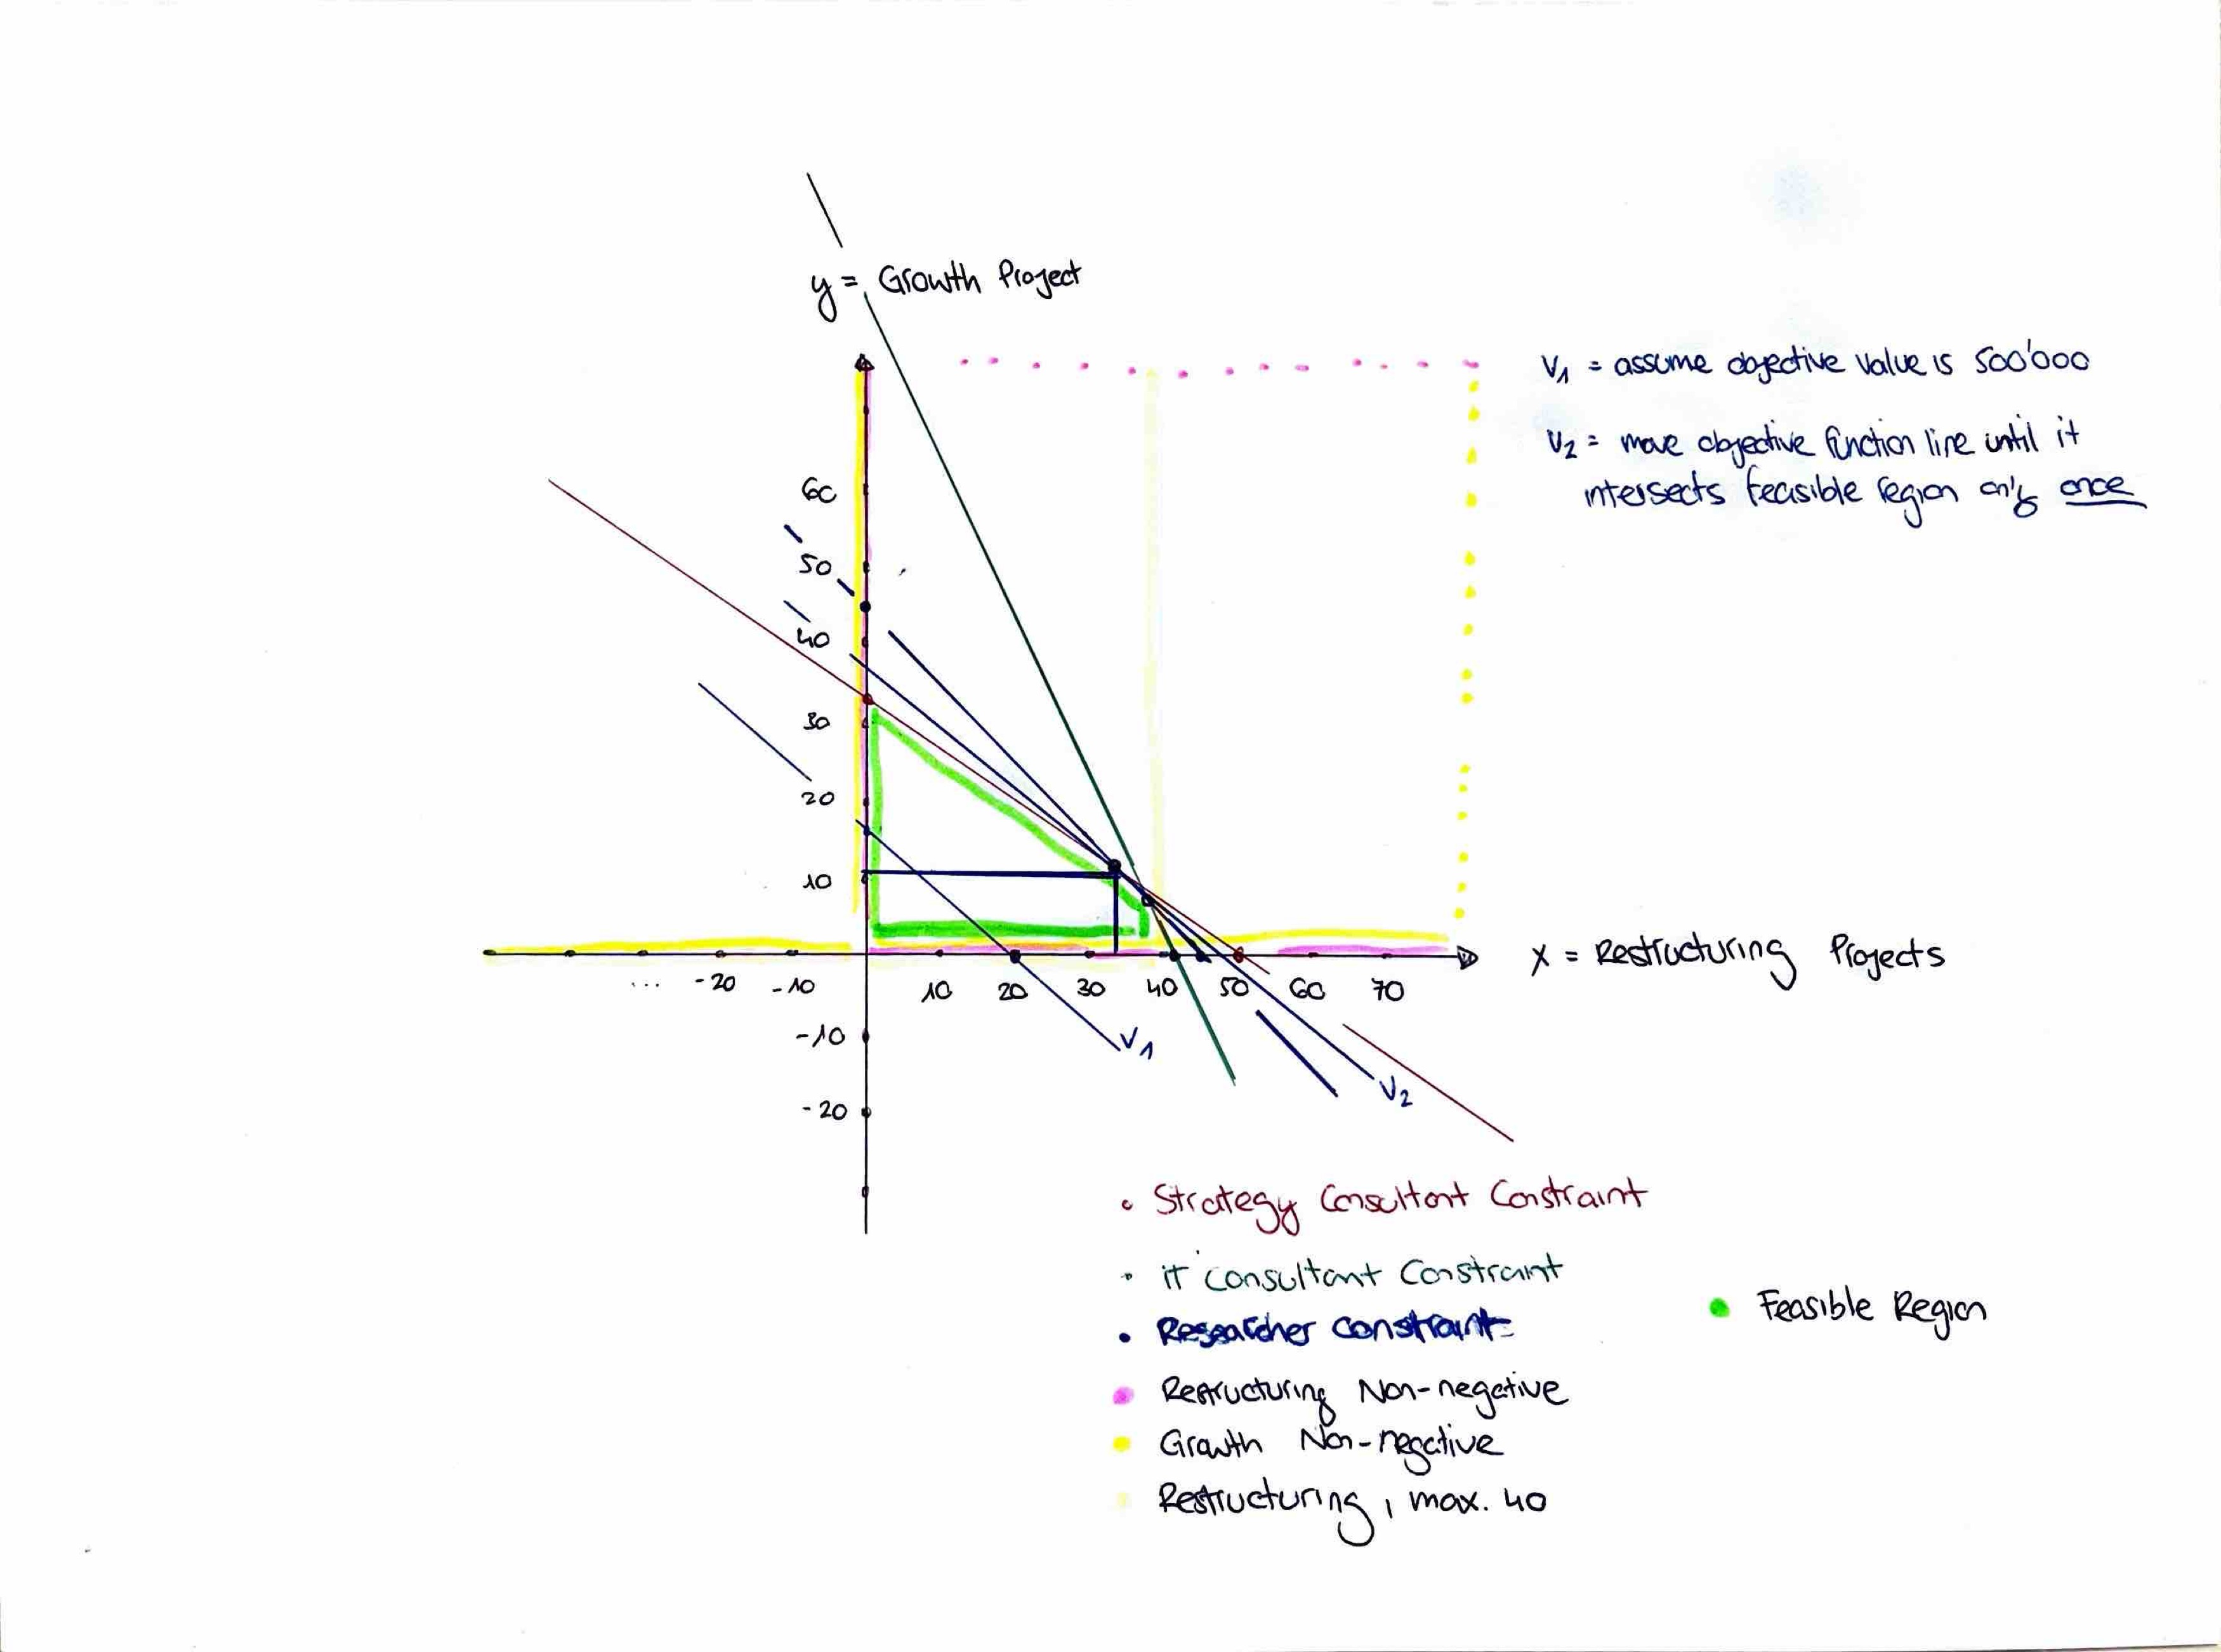 y = Growth Project
V1 = assume objective value is 500'000
V2 = move objective function line until it
intersects feasible region only once
60
50
40
30
20
10
... -20 -10 10 20 30 40 50 60 70
X = Restructuring Projects
-10
V1
V2
-20
Strategy Consultant Constraint
it consultant Constraint
Researcher constraint
Restructuring Non-negative
Growth Non-negative
Restructuring, max. 40
Feasible Region